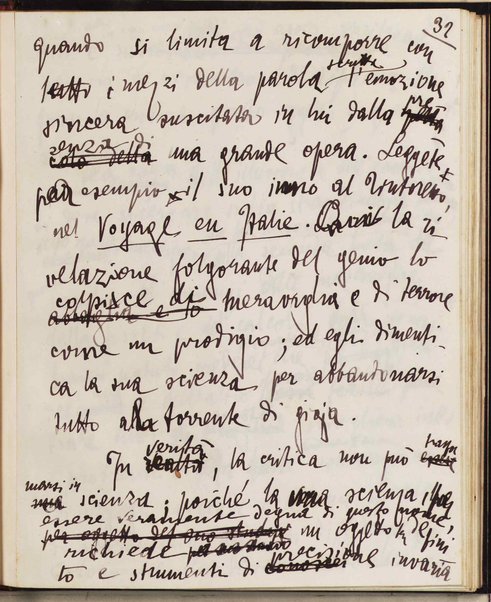 32
quando si limita a ricomporre con
tutto i mezzi della parola scritta l'emozione
sincera suscitata in lui dalla
senza di una grande opera. Leggete
per esempio il suo inno al Tintoretto,
nel Voyage en Italie. La ri
velazione folgorante del genio lo
colpisce di meraviglia e di terrore
come un prodigio; ed egli dimenti-
ca la sua scienza per abbandonarsi
tutto al torrente di gioja.
In verità, la critica non può trasfor
marsi in scienza; perché la scienza, per
essere veramente degna di questo nome,
richiede un oggetto defini
to e strumenti di precisione invaria